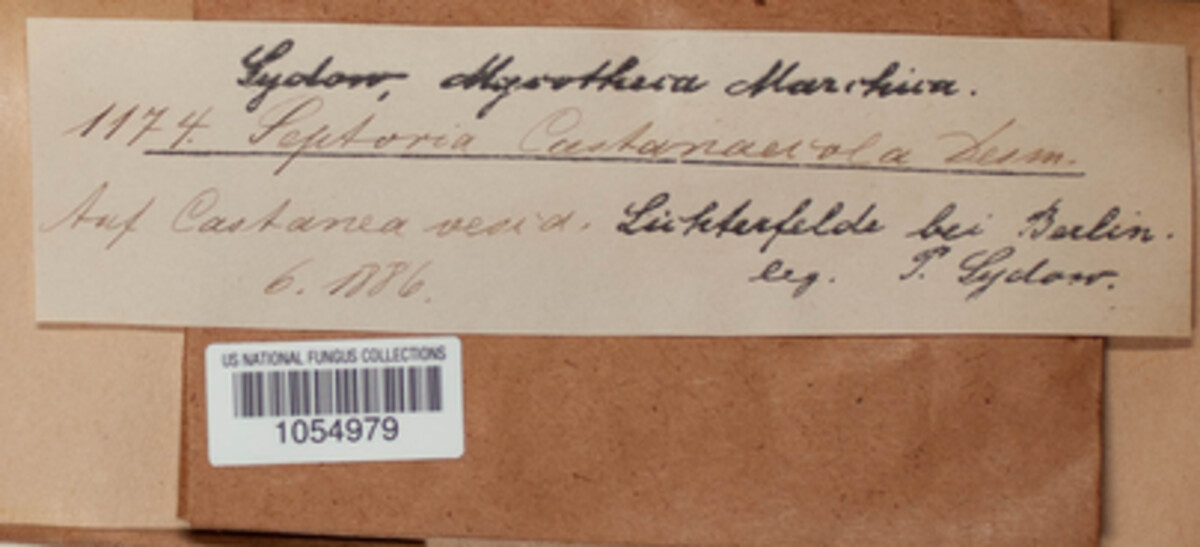 Sydow, Mycotheca Marchica.
1174. Septoria Castanaecola Desm.
Auf Castanea vesca. Lichterfelde bei Berlin.
6. 1886. leg. P. Sydow.
US NATIONAL FUNGUS COLLECTIONS
1054979